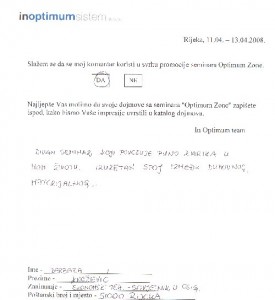 inoptimumsistem
Rijeka, 11.04. – 13.04.2008.
Slažem se da se moj komentar koristi u svrhu promocije seminara Optimum Zone.
DA NE
Najljepše Vas molimo da svoje dojmove sa seminara "Optimum Zone" zapišete
ispod, kako bismo Vaše impresije uvrstili u katalog dojmova.
In Optimum team
DIVAN SEMINAR, KOJI POVEZUJE PUNO
U MOM ŽIVOTU. IZUZETAN SPOJ IZMEĐU DUHOVNOG,
MATERIJALNOG...
Ime - BARBARA
Prezime - KNEŽEVIĆ
Zanimanje - EKONOMSKI TEH.
Poštanski broj i mjesto - 51000 RIJEKA